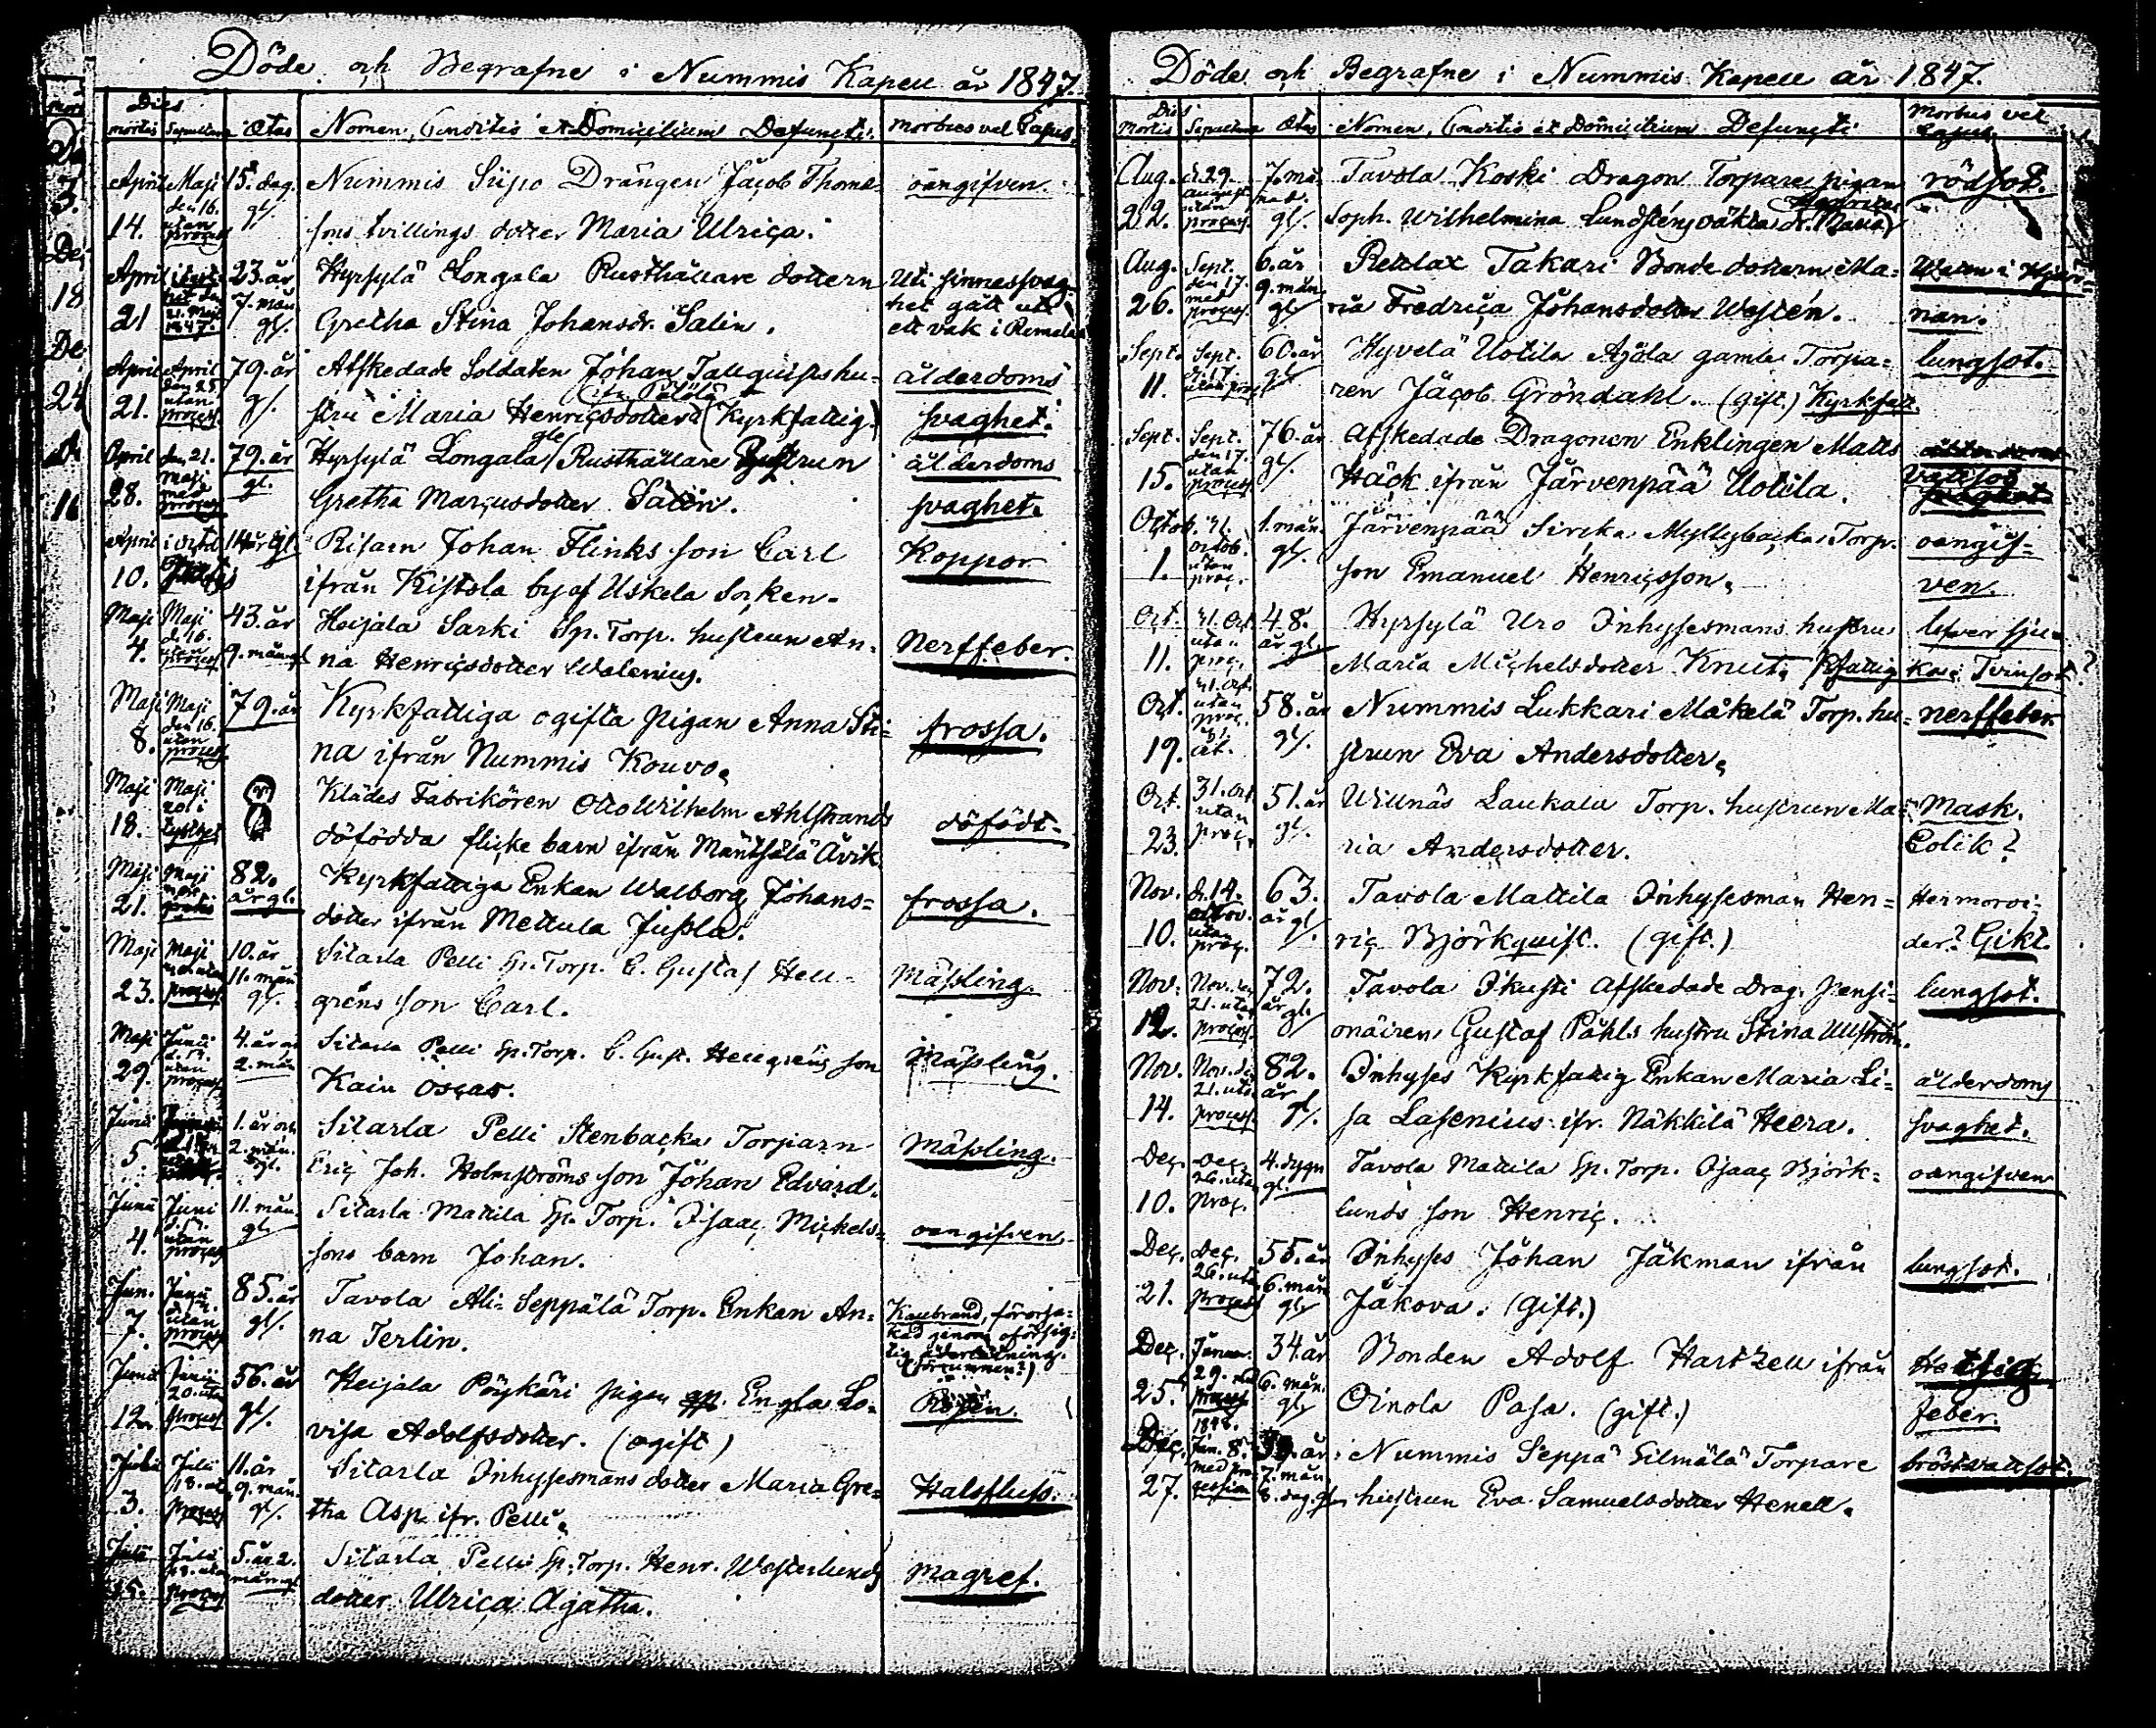 Döde och Begrafne i Nummis Kapell år 1847.
Dies
mortis Sepulturæ Ætas Nomen, Conditio et Domicilium Defuncti. Morbus vel Casus.
April Maji 15. dag. Nummis Siipo Drängen Jacob Thoma= oangifven.
14. den 16. utan process gl. sons tvillings dotter Maria Ulrica.
April 23. år Hyrsylä Longala Rusthållare dottern Uti sinnessvag=
21 21. Maji 1847. 7. mån gl. Gretha Stina Johansdr. Salin. het gått uti
ett vak i
April April 79. år Afskedade Soldaten Johan hu= ålderdoms
21. den 25 utan process gl. stru Maria Henricsdotter (Kyrkfattig.) svaghet.
April den 21. 79. år Hyrsylä Longala Rusthållare Enkan ålderdoms
28. Maji med process gl. Gretha Marcusdotter Salin. svaghet.
April 14 år gl. Risarn Johan Flinks son Carl Koppor
10. ifrån Kistola by af Uskela Socken.
Maji Maji 43. år Heijala Sarki Sp. Torp. hustrun An= Nerffeber.
4. d. 16. utan process 9. mån gl na Henricsdotter Walenius.
Maji Maji 79. år Kyrkfattiga ogifta pigan Anna Sti= frossa.
8. den 16. utan process na ifrån Nummis Kouvo.
Maji Maji Klädes Fabrikören Otto Wilhelm Ahlstrands
18. 20 i dödfödda flicke barn ifrån Mäntsälä Åvik döfödt.
Maji Maji 82. Kyrkfattiga Enkan Walborg Johans= frossa.
21. år gl. dotter ifrån Mettula Jussla.
Maji Maji 10. år Sitarla Pelli Sp. Torp. C. Gustaf Hell= Mässling.
23. process 11. mån gl. gréns son Carl.
Maji Junii 4. år Sitarla Pelli Sp. Torp. C. Gust. Hellgréns son Mässling.
29. utan process 2. mån Oscar.
Junii 1. år och Sitarla Pelli Stenbacka Torparn Mässling.
5. 2. mån. gl. Eric Joh. Holmströms son Johan Edvard.
Junii Juni 11. mån. Sitarla Mattila Sp. Torp. Isaac Mickels= oangifven
4. utan process gl sons barn Johan.
Jun. Junii 85. år Tavola Ali-Seppälä Torp. Enkan An= Kallbrand, förorsa=
7. utan process gl. na Terlin. kad genom oförsig=
tig åderlåtning.
Junii Junii 56. år Heijala Pöykäri pigan Engla Lo=
12. 20. utan process gl. visa Adolfsdotter. (ogift)
Julii Julii 11. år Sitarla Inhysesmans dotter Maria Gre= Halsfluss.
3. 18. process 9. mån. gl. tha Asp ifr. Pelli.
Julii Julii 5. år 2. Sitarla Pelli Sp. Torp. Henr. Westerlunds Magref.
15. 18. utan process mån gl dotter Ulrica Agatha.
Döde och Begrafne i Nummis Kapell år 1847.
Dies
Mortis Sepulturæ Ætas Nomen, Conditio et Domicilium Defuncti Morbus vel Casus.
Aug. d. 29. 7. må= Tavola Koski Dragon Torpare pigan rödsot.
22. augusti utan process. nad. gl. Soph. Wilhelmina Lundsténs oäkta d. Maria
Aug. Sept. 6. år Retlax Takari Bonde dottern Ma= Watten i Hjer=
26. den 17. med process. 9. mån gl ria Fredrica Johansdotter Westén. nan.
Sept. Sept. 60. år Hyvelä Uotila Ajola gamla Torpa= lungsot.
11. utan proc. gl ren Jacob Gröndahl. (gift.) Kyrkfatt.
Sept. Sept. 76. år Afskedade Dragonen Enklingen Matts
15. den 17. utan process gl. Häck ifrån Järvenpää Uotila. vattsot
Octob. 31. 1. mån. Järvenpää Sircka Myllybacka Torp. oangif=
1. octob. utan proc. gl. son Emanuel Henricsson. ven.
Oct. 31. Oct. 48. Hyrsylä Uro Inhysesmans hustru lefver sju=
11. utan proc. år gl. Maria Michelsdotter Knut. kfattig ka. Tvinsot?
Oct. 31. Oct. 58. år Nummis Lukkari Mäkelä Torp. hu= nerffeber
19. utan proc. gl. strun Eva Andersdotter.
Oct. 31. Oct 51. år Willnäs Laukala Torp. hustrun Ma= Mask.
23. utan proc. gl. ria Andersdotter. Colik?
Nov. d. 14. 63. Tavola Mattila Inhysesman Hen= Hemorroi=
10. Nov. utan proc. år gl. ric Björkquist. (gift.) der? Gikt.
Nov. Nov. 72. Tavola Ikusti Afskedade Drag. Pensi= lungsot.
12. 21. utan process år gl. onairen Gustaf Påhls hustru Stina Ullström.
Nov. Nov. 82. Inhyses Kyrkfattig Enkan Maria Li= ålderdoms
14. 21. utan process. år gl. sa Lasenius ifr. Näkkilä Heera. svaghet.
Dec. Dec. 4. dygn Tavola Mattila Sp. Torp. Isaac Björk= oangifven
10. 26. utan proc. gl. lunds son Henric.
Dec. Dec. 55. år Inhyses Johan Jäkman ifrån lungsot.
21. 26. utan process 6. mån gl Jäkova. (Gift.)
Dec. Januar. 34. år Bonden Adolf Hartzell ifrån hetsig
25. 29. process 1848. 6. mån. gl. Oinola Pasa. (gift.) feber.
Dec. Jan. 8. år Nummis Seppä Silmälä Torpare bröstvattsot.
27. med procession 7. mån 8. dag. gl. hustrun Eva Samuelsdotter Henell.